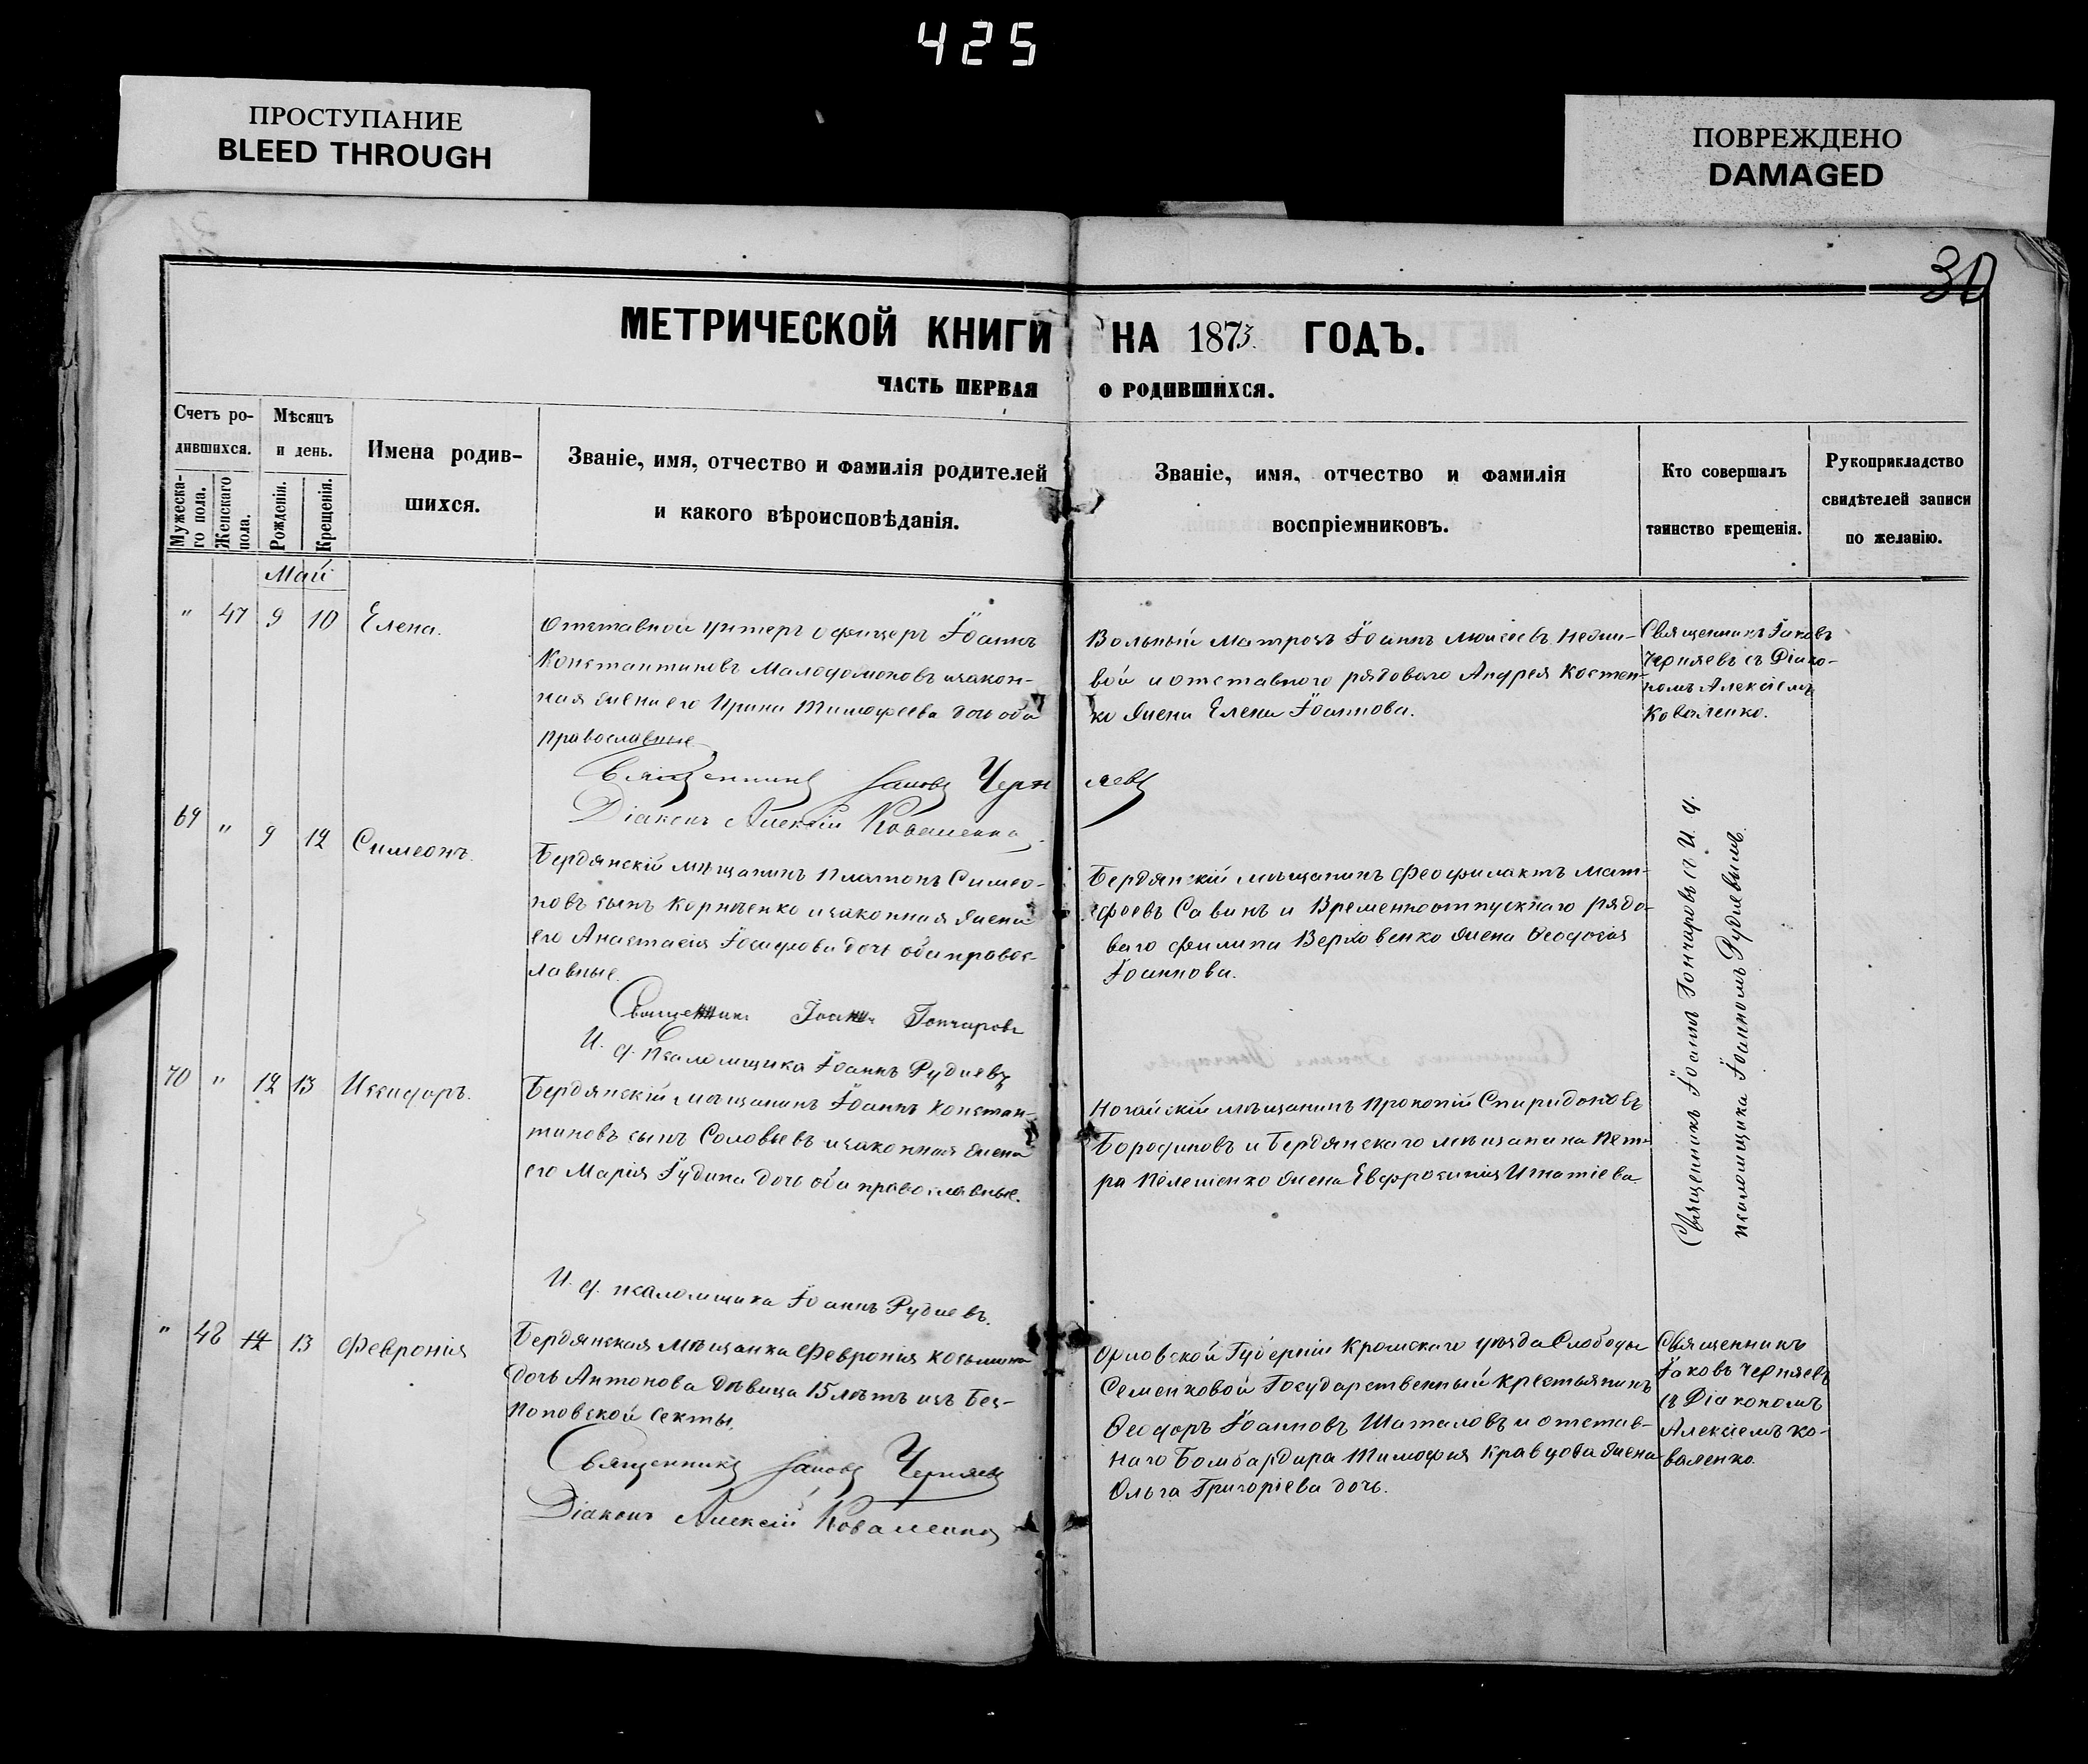 425
ПРОСТУПАНИЕ
BLEED THROUGH
ПОВРЕЖДЕНО
DAMAGED
30
МЕТРИЧЕСКОЙ КНИГИ НА 1873 ГОДЪ.
ЧАСТЬ ПЕРВАЯ О РОДИВШИХСЯ.
Счетъ ро-
дившихся.
Мужеска-
го пола.
Женскаго
пола.
Мѣсяцъ
и день.
Рожденія.
Крещенія.
Имена родив-
шихся.
Званіе, имя, отчество и фамилія родителей
и какого вѣроисповѣданія.
Званіе, имя, отчество и фамилія
воспріемниковъ.
Кто совершалъ
таинство крещенія.
Рукоприкладство
свидѣтелей записи
по желанію.
Май
" 47 9 10 Елена.
Отставной унтеръ офицеръ Іоаннъ
Константиновъ изакон-
ная жена его Ирина Тимофеева дочь оба
православные
Вольный матрозъ Іоаннъ Моисеевъ
вой и отставного рядоваго Андрея Костен-
ко жена Елена Іоаннова.
Священникъ Іаковъ
Черняевъ съ Діако-
номъ Алексіемъ
Коваленко.
Священникъ Іаковъ Черняевъ
Діаконъ Алексій Коваленко
69 " 9 12 Симеонъ.
Бердянскій мѣщанинъ Платонъ Симео-
новъ сынъ Корниенко изаконная жена
его Анастасія Іосифова дочь оба правос-
лавные.
Бердянскій мѣщанинъ Феофилактъ Мат-
фѣевъ Савинъ и Временноотпускнаго рядо-
ваго Филипа Верховенко жена Ѳеодосія
Іоаннова.
Священникъ Іоаннъ Гончаровъ
И. ф. псаломщика Іоаннъ Рудиевъ
Священникъ Іоаннъ Гончаровъ съ И. ф.
псаломщика Іоанномъ Рудиевымъ
70 " 12 13 Исидоръ.
Бердянскій мѣщанинъ Іоаннъ Констан-
тиновъ сынъ Соловьевъ изаконная жена
его Марія Іудина дочь оба православные.
Ногайскій мѣщанинъ Прокопій Спиридоновъ
и Бердянскаго мѣщанина Пет-
ра жена Евфросинія Игнатіева
И. ф. псаломщика Іоаннъ Рудиевъ.
" 48 12 13 Февронія
Бердянская мѣщанка Февронія Козьмина
дочь Антонова дѣвица 15 лѣтъ изъ Без-
поповской секты.
Орловской Губерніи Кромскаго уѣзда Слободы
Семенковой Государственный крестьянинъ
Ѳеодоръ Іоанновъ Шаталовъ и отстав-
наго Бомбардира Тимофея Кравцова жена
Ольга Григоріева дочь.
Священникъ
Іаковъ Черняевъ
съ Діакономъ
Алексіемъ Ко-
валенко.
Священникъ Іаковъ Черняевъ
Діаконъ Алексій Коваленко